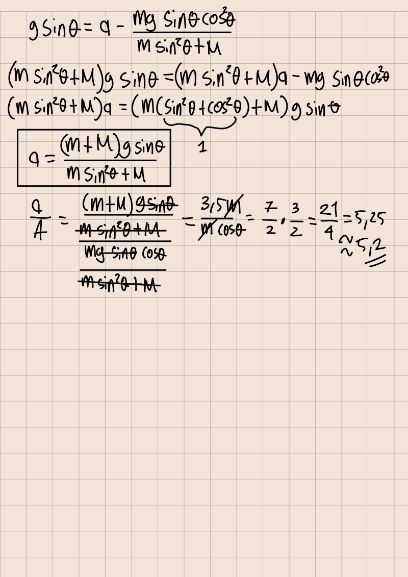 g sinθ = a - mg sinθ cos²θ / m sin²θ + M
(m sin²θ + M) g sinθ = (m sin²θ + M) a - mg sinθ cos²θ
(m sin²θ + M) a = (m (sin²θ + cos²θ) + M) g sinθ
1
a = (m + M) g sinθ / m sin²θ + M
a / A = (m + M) g sinθ / m sin²θ + M / mg sinθ cosθ / m sin²θ + M = 3,5 m / m cosθ = 7/2 · 3/2 = 21/4 = 5,25
≈ 5,2